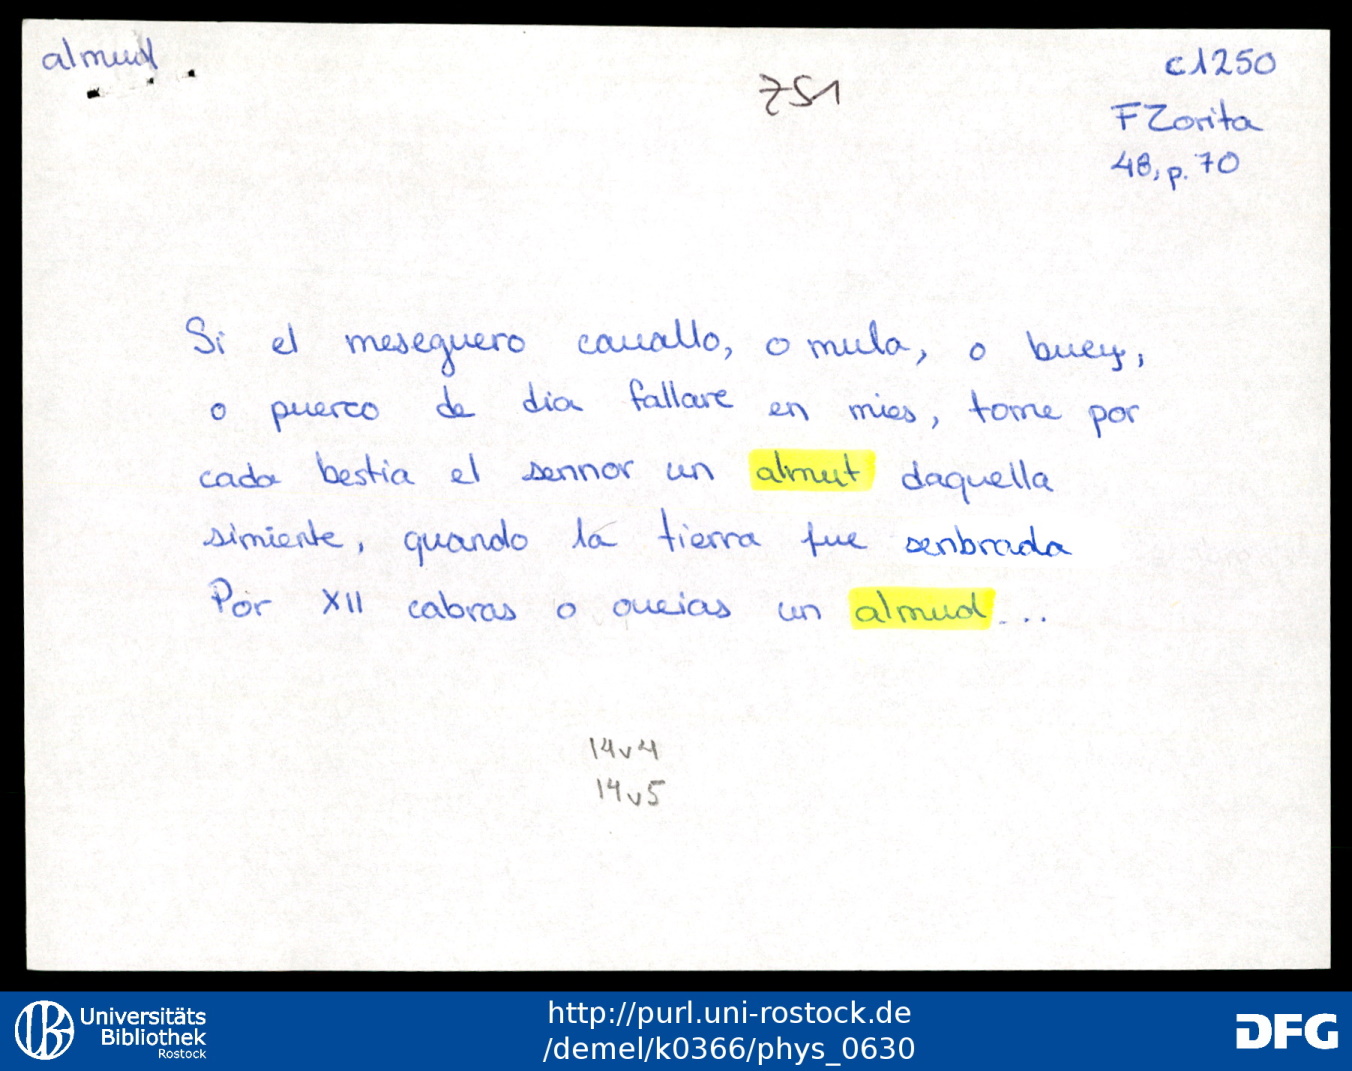 almud
c1250
ZS1
F Zorita
48, p. 70
Si el meseguero cauallo, o mula, o buey,
o puerco de dia fallare en mies, tome por
cada bestia el sennor un almut daquella
simiente, quando la tierra fue senbrada
Por XII cabras o oueias un almud...
14v4
14v5
Universitäts
Bibliothek
Rostock
http://purl.uni-rostock.de
/demel/k0366/phys_0630
DFG